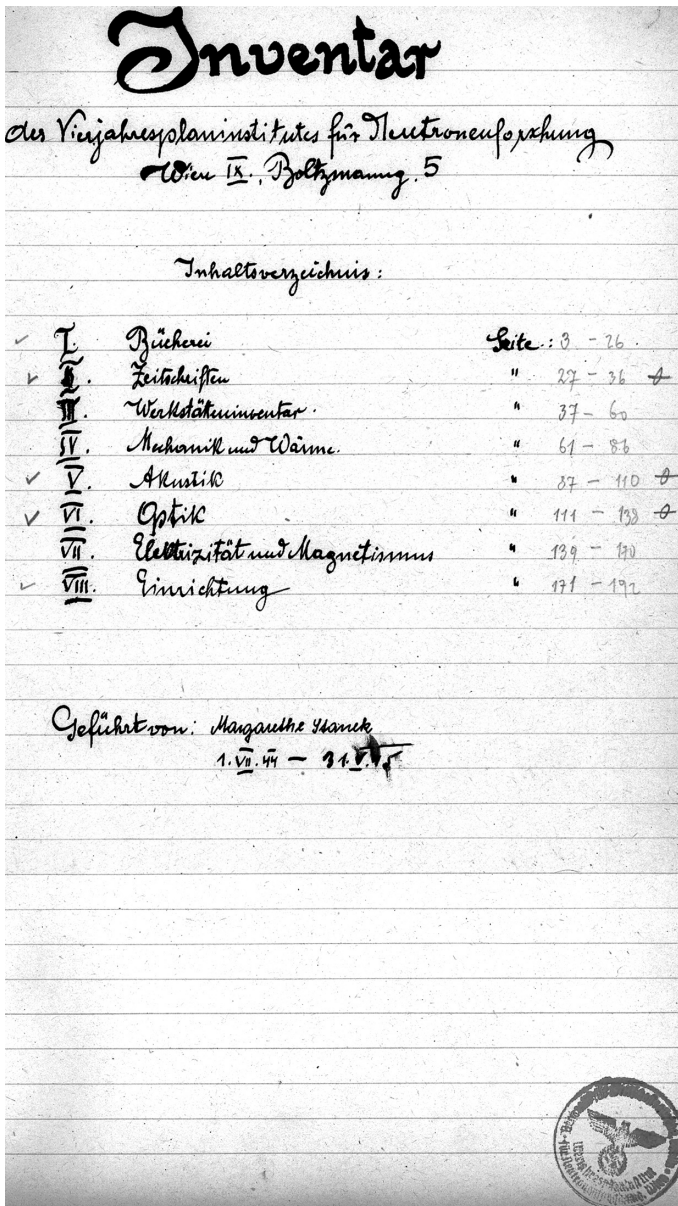 Inventar
des Vierjahresplaninstitutes für Neutronenforschung
Wien IX., Boltzmanng. 5
Inhaltsverzeichnis:
I. Bücherei Seite: 3 - 26.
II. Zeitschriften " 27 - 36
III. Werkstätteninventar. " 37 - 60
IV. Mechanik und Wärme. " 61 - 86
V. Akustik " 87 - 110
VI. Optik " 111 - 138
VII. Elektrizität und Magnetismus " 139 - 170
VIII. Einrichtung " 171 - 192
Geführt von: Margarethe Stanek
1. VII. 44 — 31. V.
Vierjahresplaninstitut